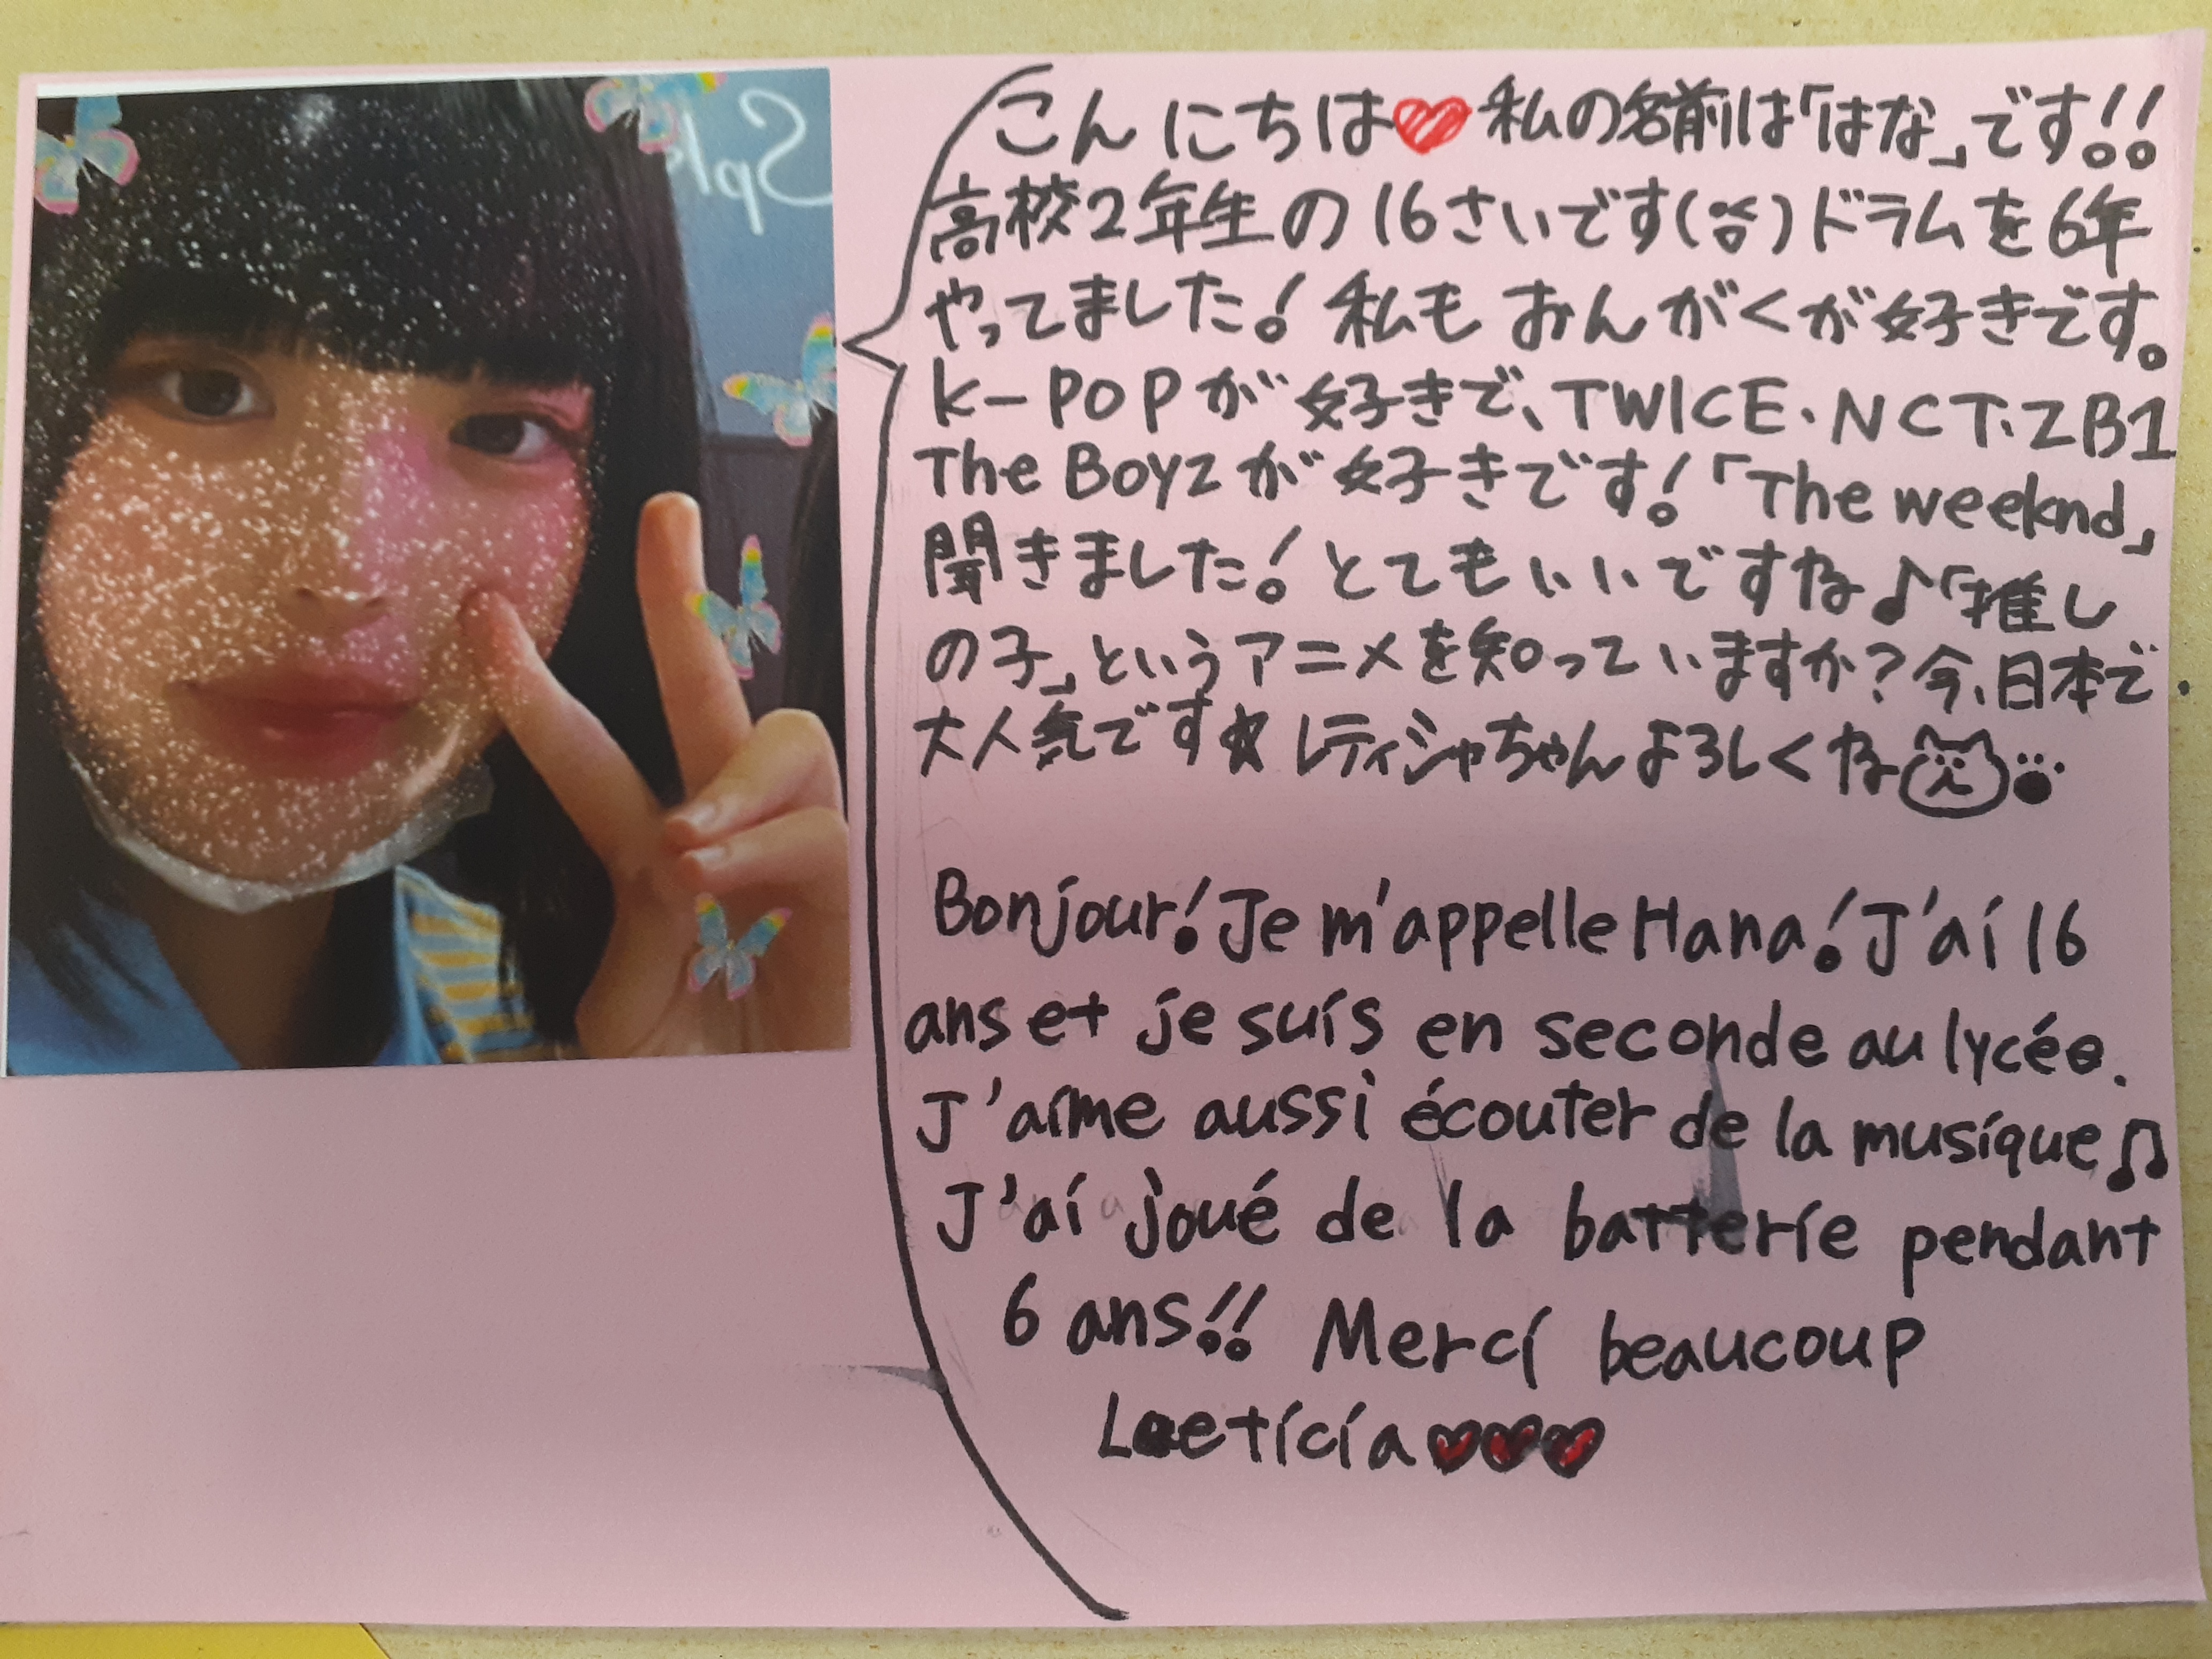 こんにちは❤私の名前は「はな」です!!
高校2年生の16さいです( )ドラムを6年
やってました!私もおんがくが好きです。
K-POPが好きで、TWICE・NCT・ZB1
The Boyzが好きです!「The weeknd」
聞きました!とてもいいですね♪「推し
の子」というアニメを知っていますか?今、日本で
大人気です☆レティシャちゃんよろしくね
Bonjour! Je m'appelle Hana! J'ai 16
ans et je suis en seconde au lycée.
J'aime aussi écouter de la musique♫
J'ai joué de la batterie pendant
6 ans!! Merci beaucoup
Laeticia♥♥♥